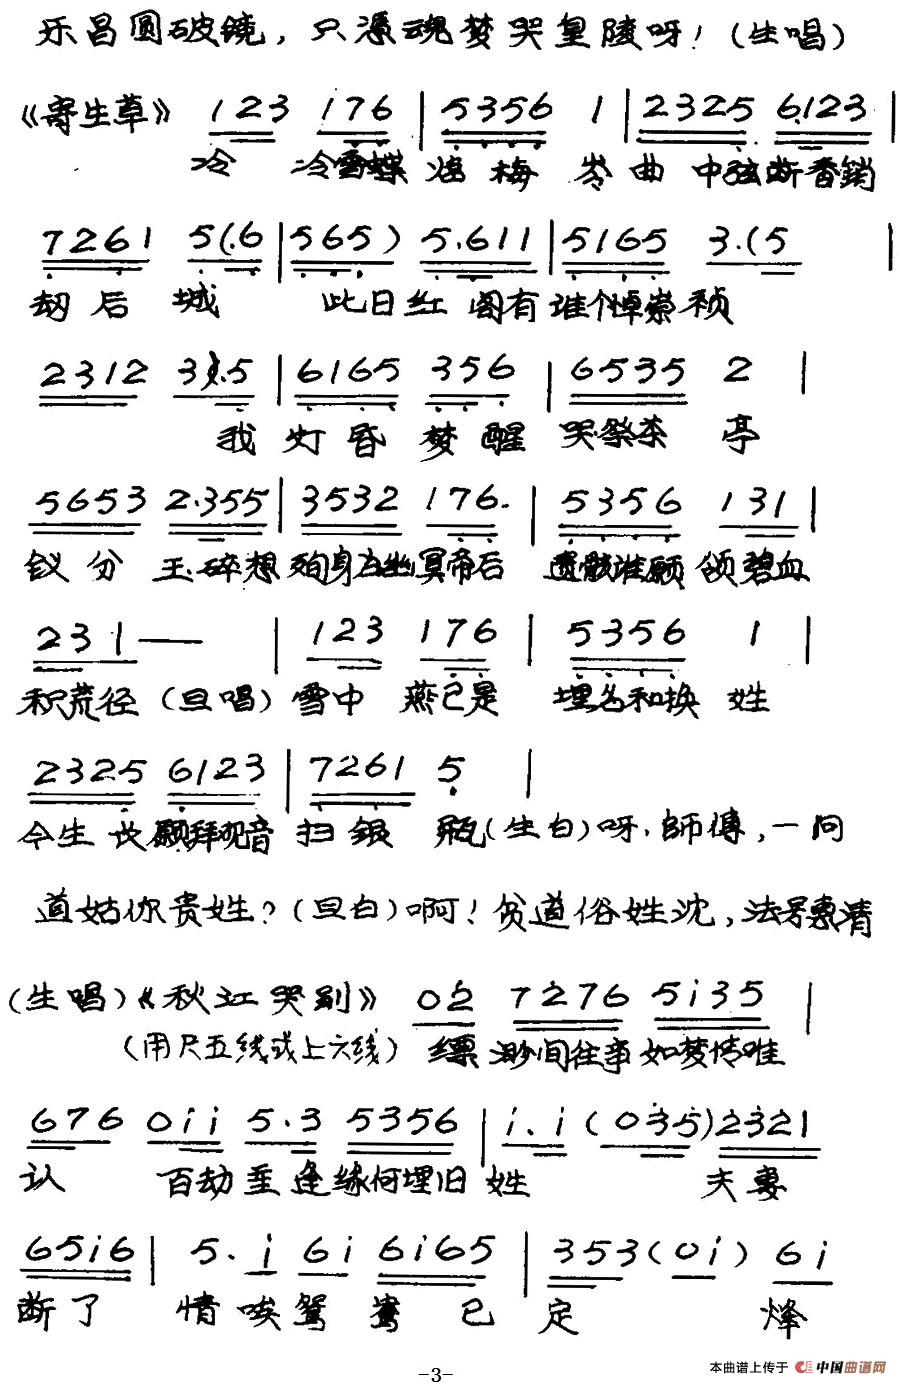 乐昌圆破镜，只凭魂梦哭皇陵呀！（生唱）
《寄生草》 123 176 | 5356 1 | 2325 6123 |
冷 冷雪蝶 临梅 岺曲 中弦断香銷
7261 5(.6 | 565) 5.611 | 5165 3.(5 |
劫后 城 此日红 阁有谁个悼崇祯
2312 3).5 | 6165 356 | 6535 2 |
我 灯昏 梦醒 哭祭茶 亭
5653 2.355 | 3532 176. | 5356 131 |
钗分 玉碎想 殉身在幽冥帝后 遗骸谁愿 领碧血
231 — | 123 176 | 5356 1 |
积荒径（旦唱）雪中 燕已是 埋名和换 姓
2325 6123 | 7261 5 |
今生 长愿拜观音 扫银 瓶（生白）呀．師傅，一问
道姑你贵姓？（旦白）啊！贫道俗姓沈，法号惠清
（生唱）《秋江哭别》 02 7276 5i35 |
（用尺五线或上六线） 缥 渺间往事 如梦情难
676 0ii 5.3 5356 | i.i (035) 2321
认 百劫重 逢缘何埋旧 姓 夫妻
65i6 | 5.i 6i 6i65 | 353(0i) 6i
断了 情唉鸳 鸯 已 定 烽
-3-
本曲谱上传于 中国曲谱网